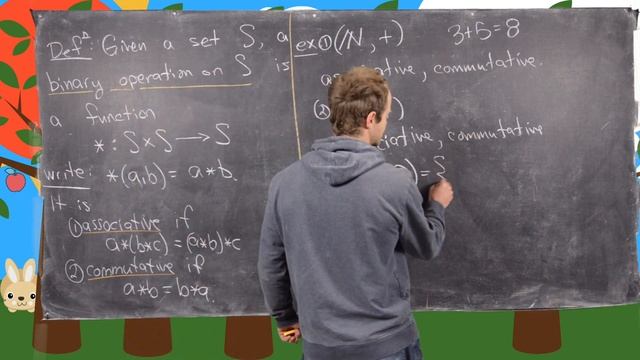 Def^n: Given a set S, a
binary operation on S is
a function
*: S×S → S
write: *(a,b) = a*b.
It is
① associative if
a*(b*c) = (a*b)*c
② commutative if
a*b = b*a.
ex① (ℕ, +) 3+5=8
associative, commutative.
② )
ciative, commutative
) = S